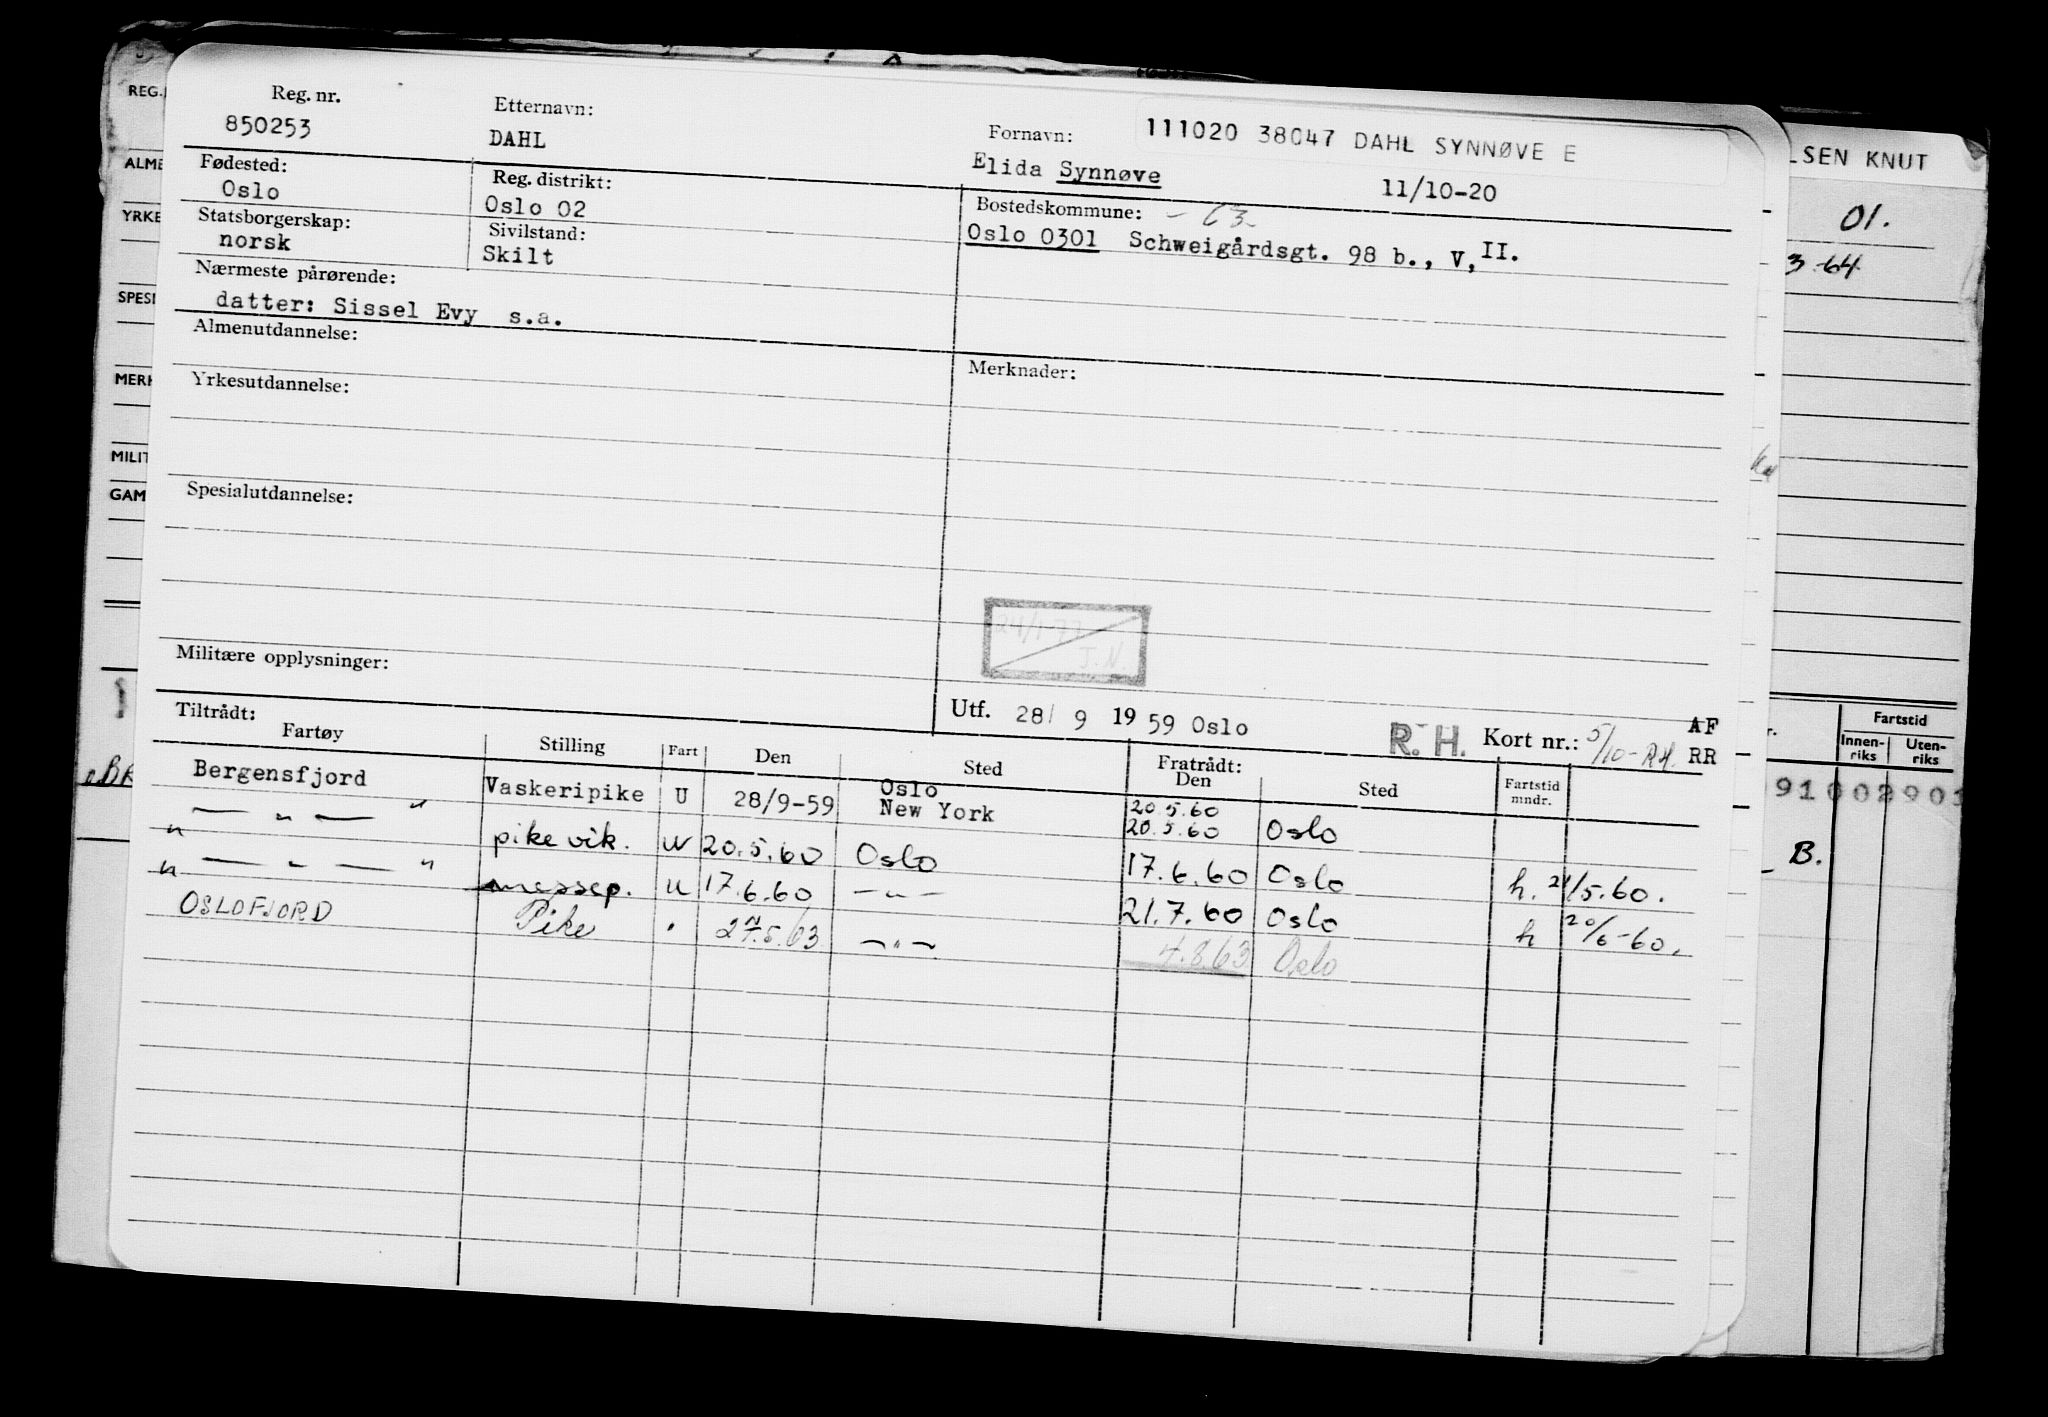 Reg. nr. Etternavn: Fornavn: 111020 38047 DAHL SYNNØVE E
850253 DAHL Elida Synnøve 11/10-20
Fødested: Reg. distrikt: Bostedskommune: - 63
Oslo Oslo 02 Oslo 0301 Schweigårdsgt. 98 b., V, II.
Statsborgerskap: Sivilstand:
norsk Skilt
Nærmeste pårørende:
datter: Sissel Evy s.a.
Almenutdannelse: Merknader:
Yrkesutdannelse:
Spesialutdannelse:
24/1-77
J.N.
Militære opplysninger:
Utf. 28/ 9 19 59 Oslo R. H. Kort nr.: 5/10-RH. AF
RR
Tiltrådt: Fratrådt:
Fartøy Stilling Fart Den Sted Den Sted Fartstid mndr.
Bergensfjord Vaskeripike U 28/9-59 Oslo 20.5.60
New York
— " — " 20.5.60 Oslo
" pike vik. U 20.5.60 Oslo 17.6.60 Oslo h. 21/5.60.
" — " — " messep. U 17.6.60 — " — 21.7.60 Oslo h 20/6-60.
OSLOFJORD Pike " 27.5.63 — " — 4.8.63 Oslo
REG.
ALME
YRKE
SPESI
MERK
MILIT
GAM
LSEN KNUT
01.
3-64
Fartstid
Innen-riks Uten-riks
B.